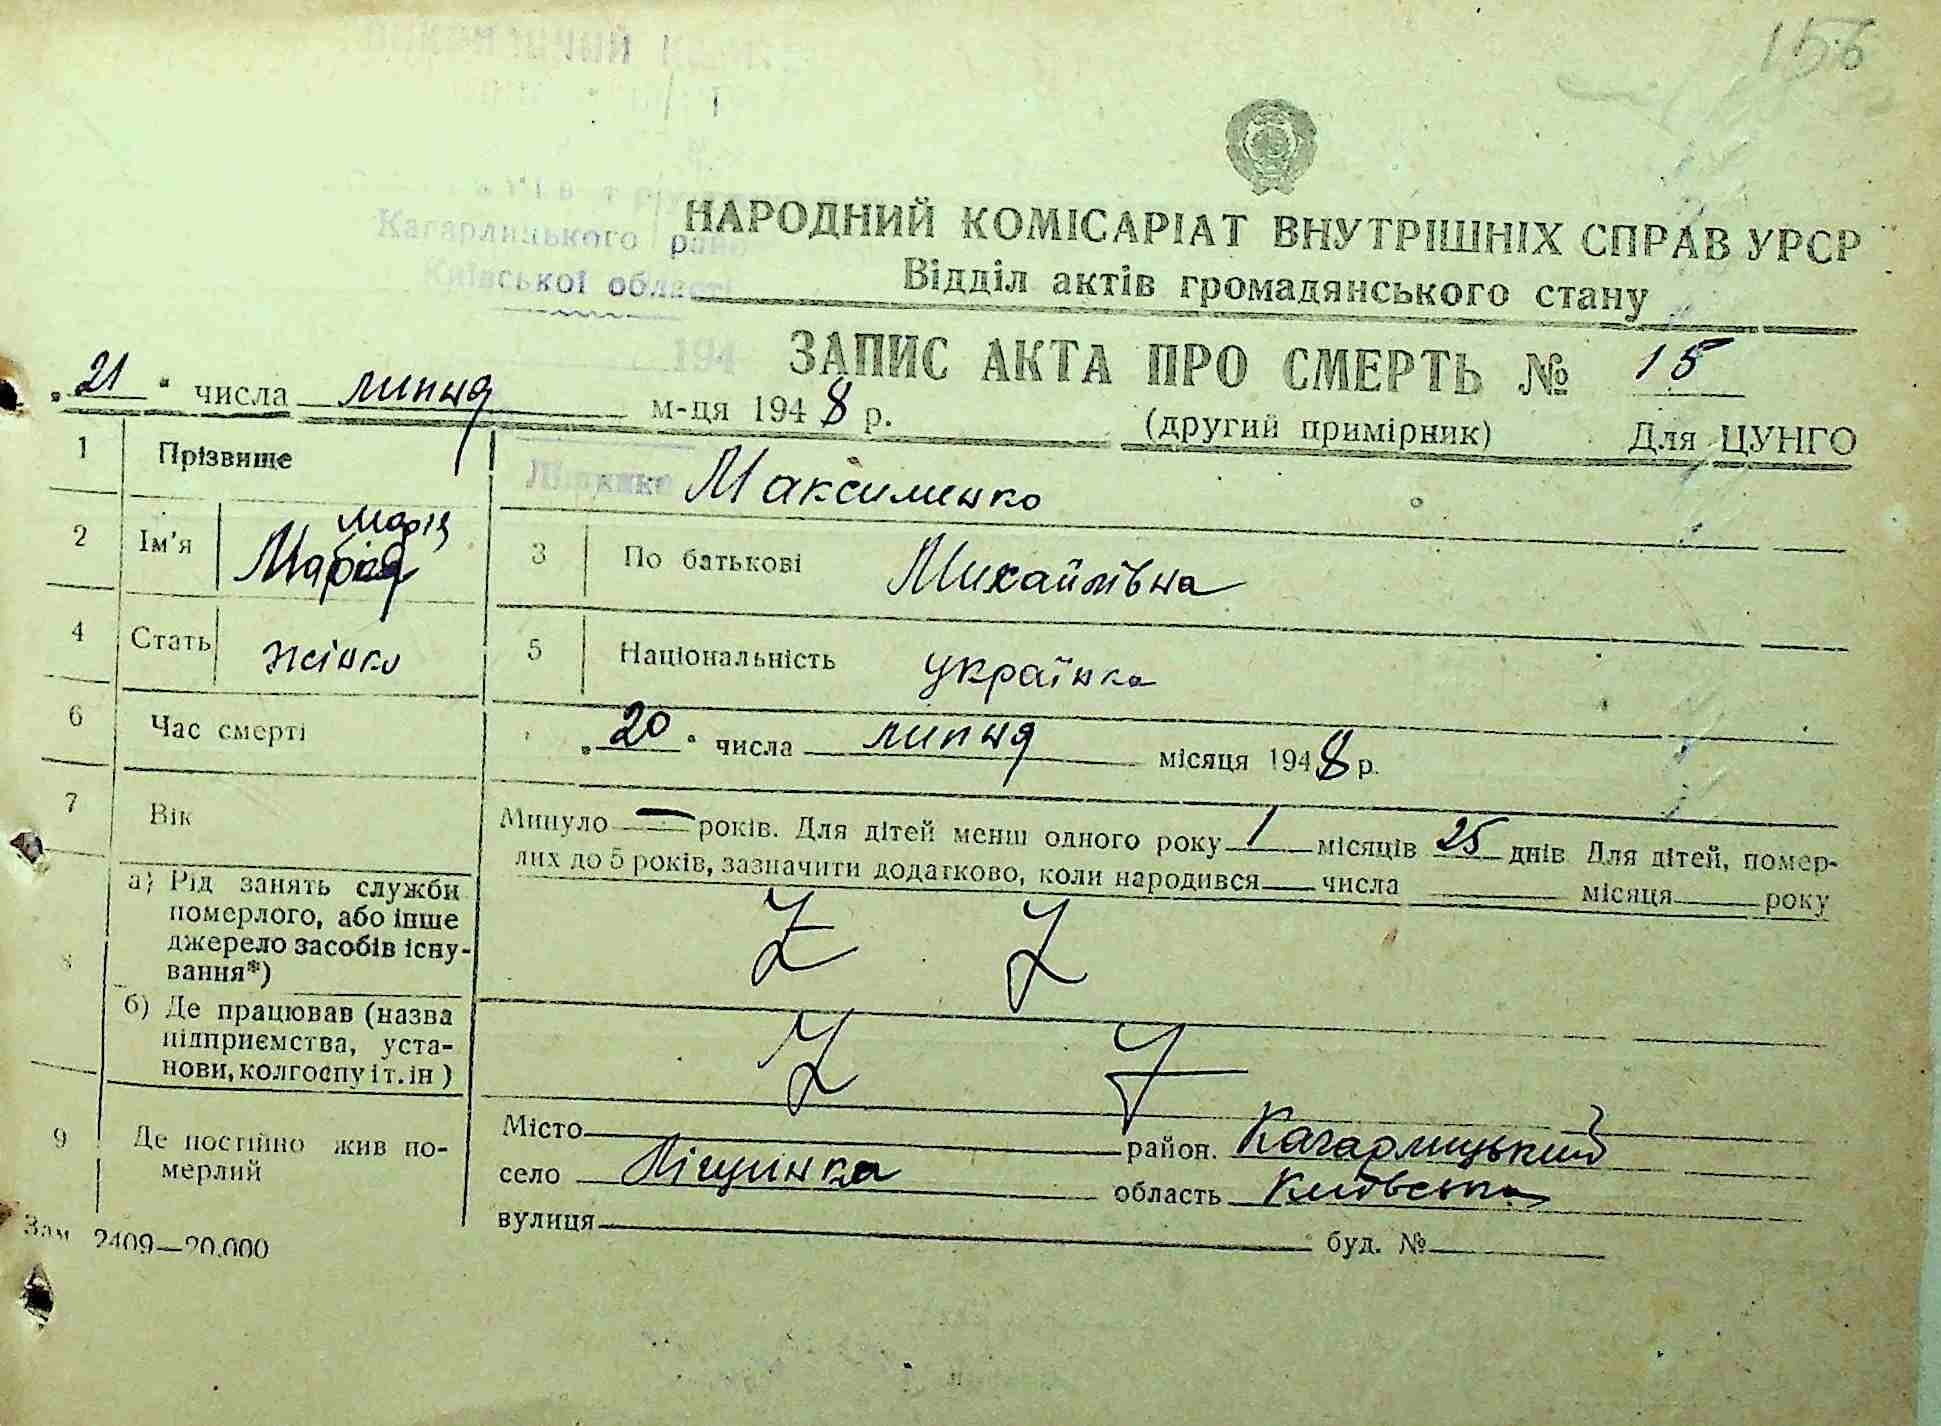 156
Кагарлицького
Київської області
НАРОДНИЙ КОМІСАРІАТ ВНУТРІШНІХ СПРАВ УРСР
Відділ актів громадянського стану
194
ЗАПИС АКТА ПРО СМЕРТЬ № 15
„21“ числа липня м-ця 1948 р.
(другий примірник) Для ЦУНГО
1 Прізвище Максименко
2 Ім'я Марія Марія 3 По батькові Михайлівна
4 Стать жінка 5 Національність українка
6 Час смерті „20“ числа липня місяця 1948 р.
7 Вік Минуло — років. Для дітей менш одного року 1 місяців 25 днів Для дітей, помер-
лих до 5 років, зазначити додатково, коли народився числа місяця року
8 а) Рід занять служби
померлого, або інше
джерело засобів існу-
вання*)
б) Де працював (назва
підприємства, уста-
нови, колгоспу і т. ін)
9 Де постійно жив по-
мерлий
Місто район. Кагарлицький
село Ліщинка область Київська
вулиця буд. №
Зам 2409—20.000